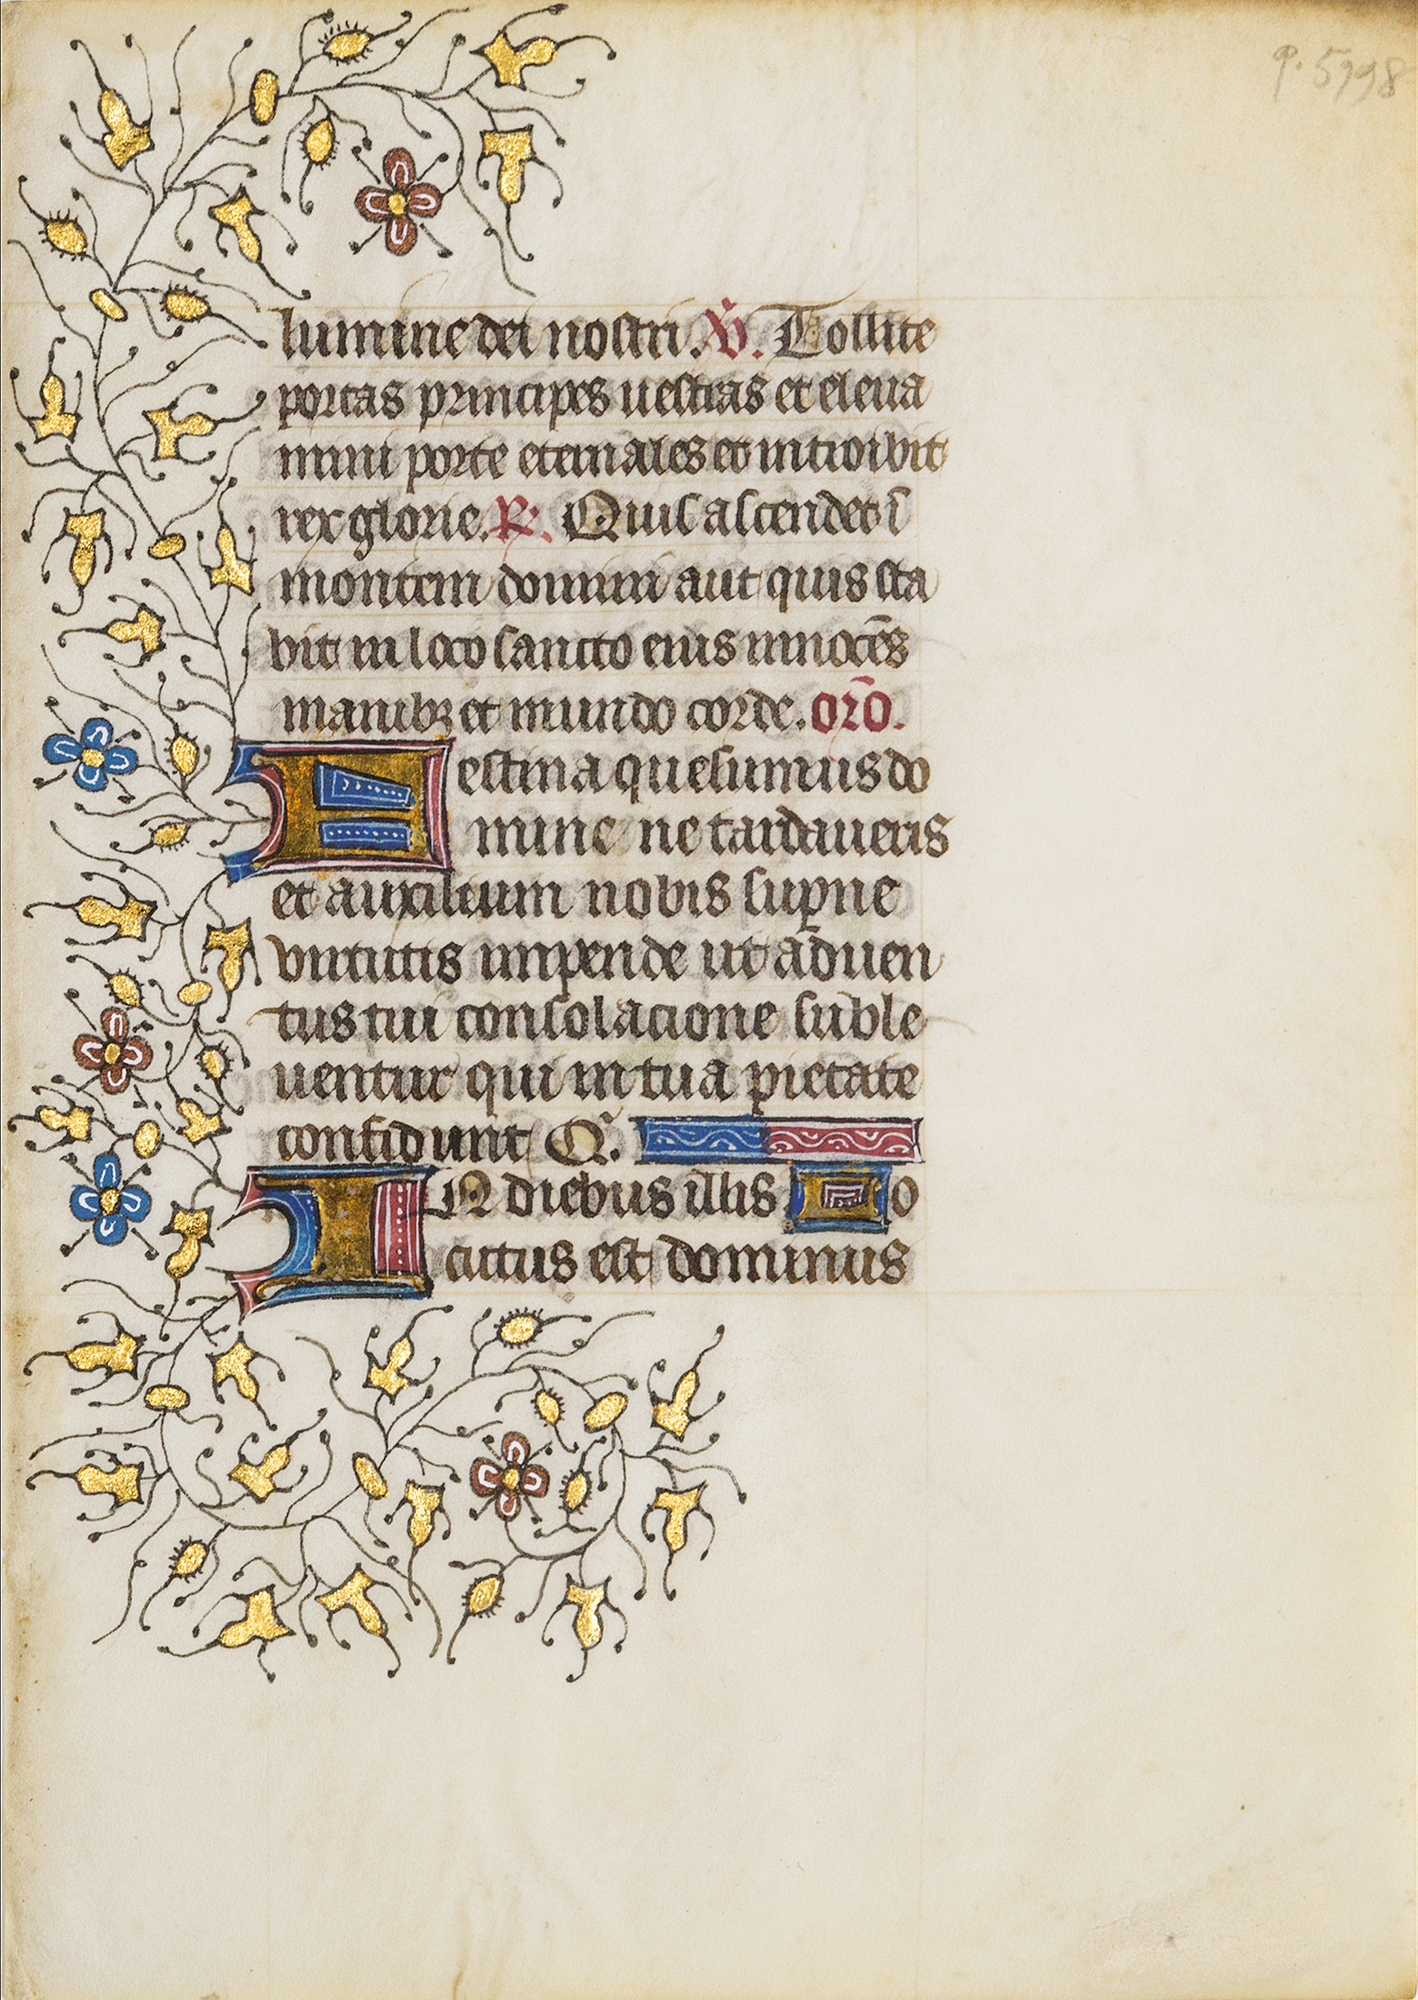 q. 5798
lumine dei nostri. V̄. Tollite
portas principes uestras et eleua
mini porte eternales et introibit
rex glorie. R. Quis ascendet ī
montem domini aut quis sta
bit in loco sancto eius innocēs
manibꝫ et mundo corde. orō.
Festina quesumus do
mine ne tardaueris
et auxilium nobis suꝑne
virtutis impende ut aduen
tus tui consolacione suble
uentur qui in tua pietate
confidunt Q.
IN diebus illis Lo
cutus est dominus